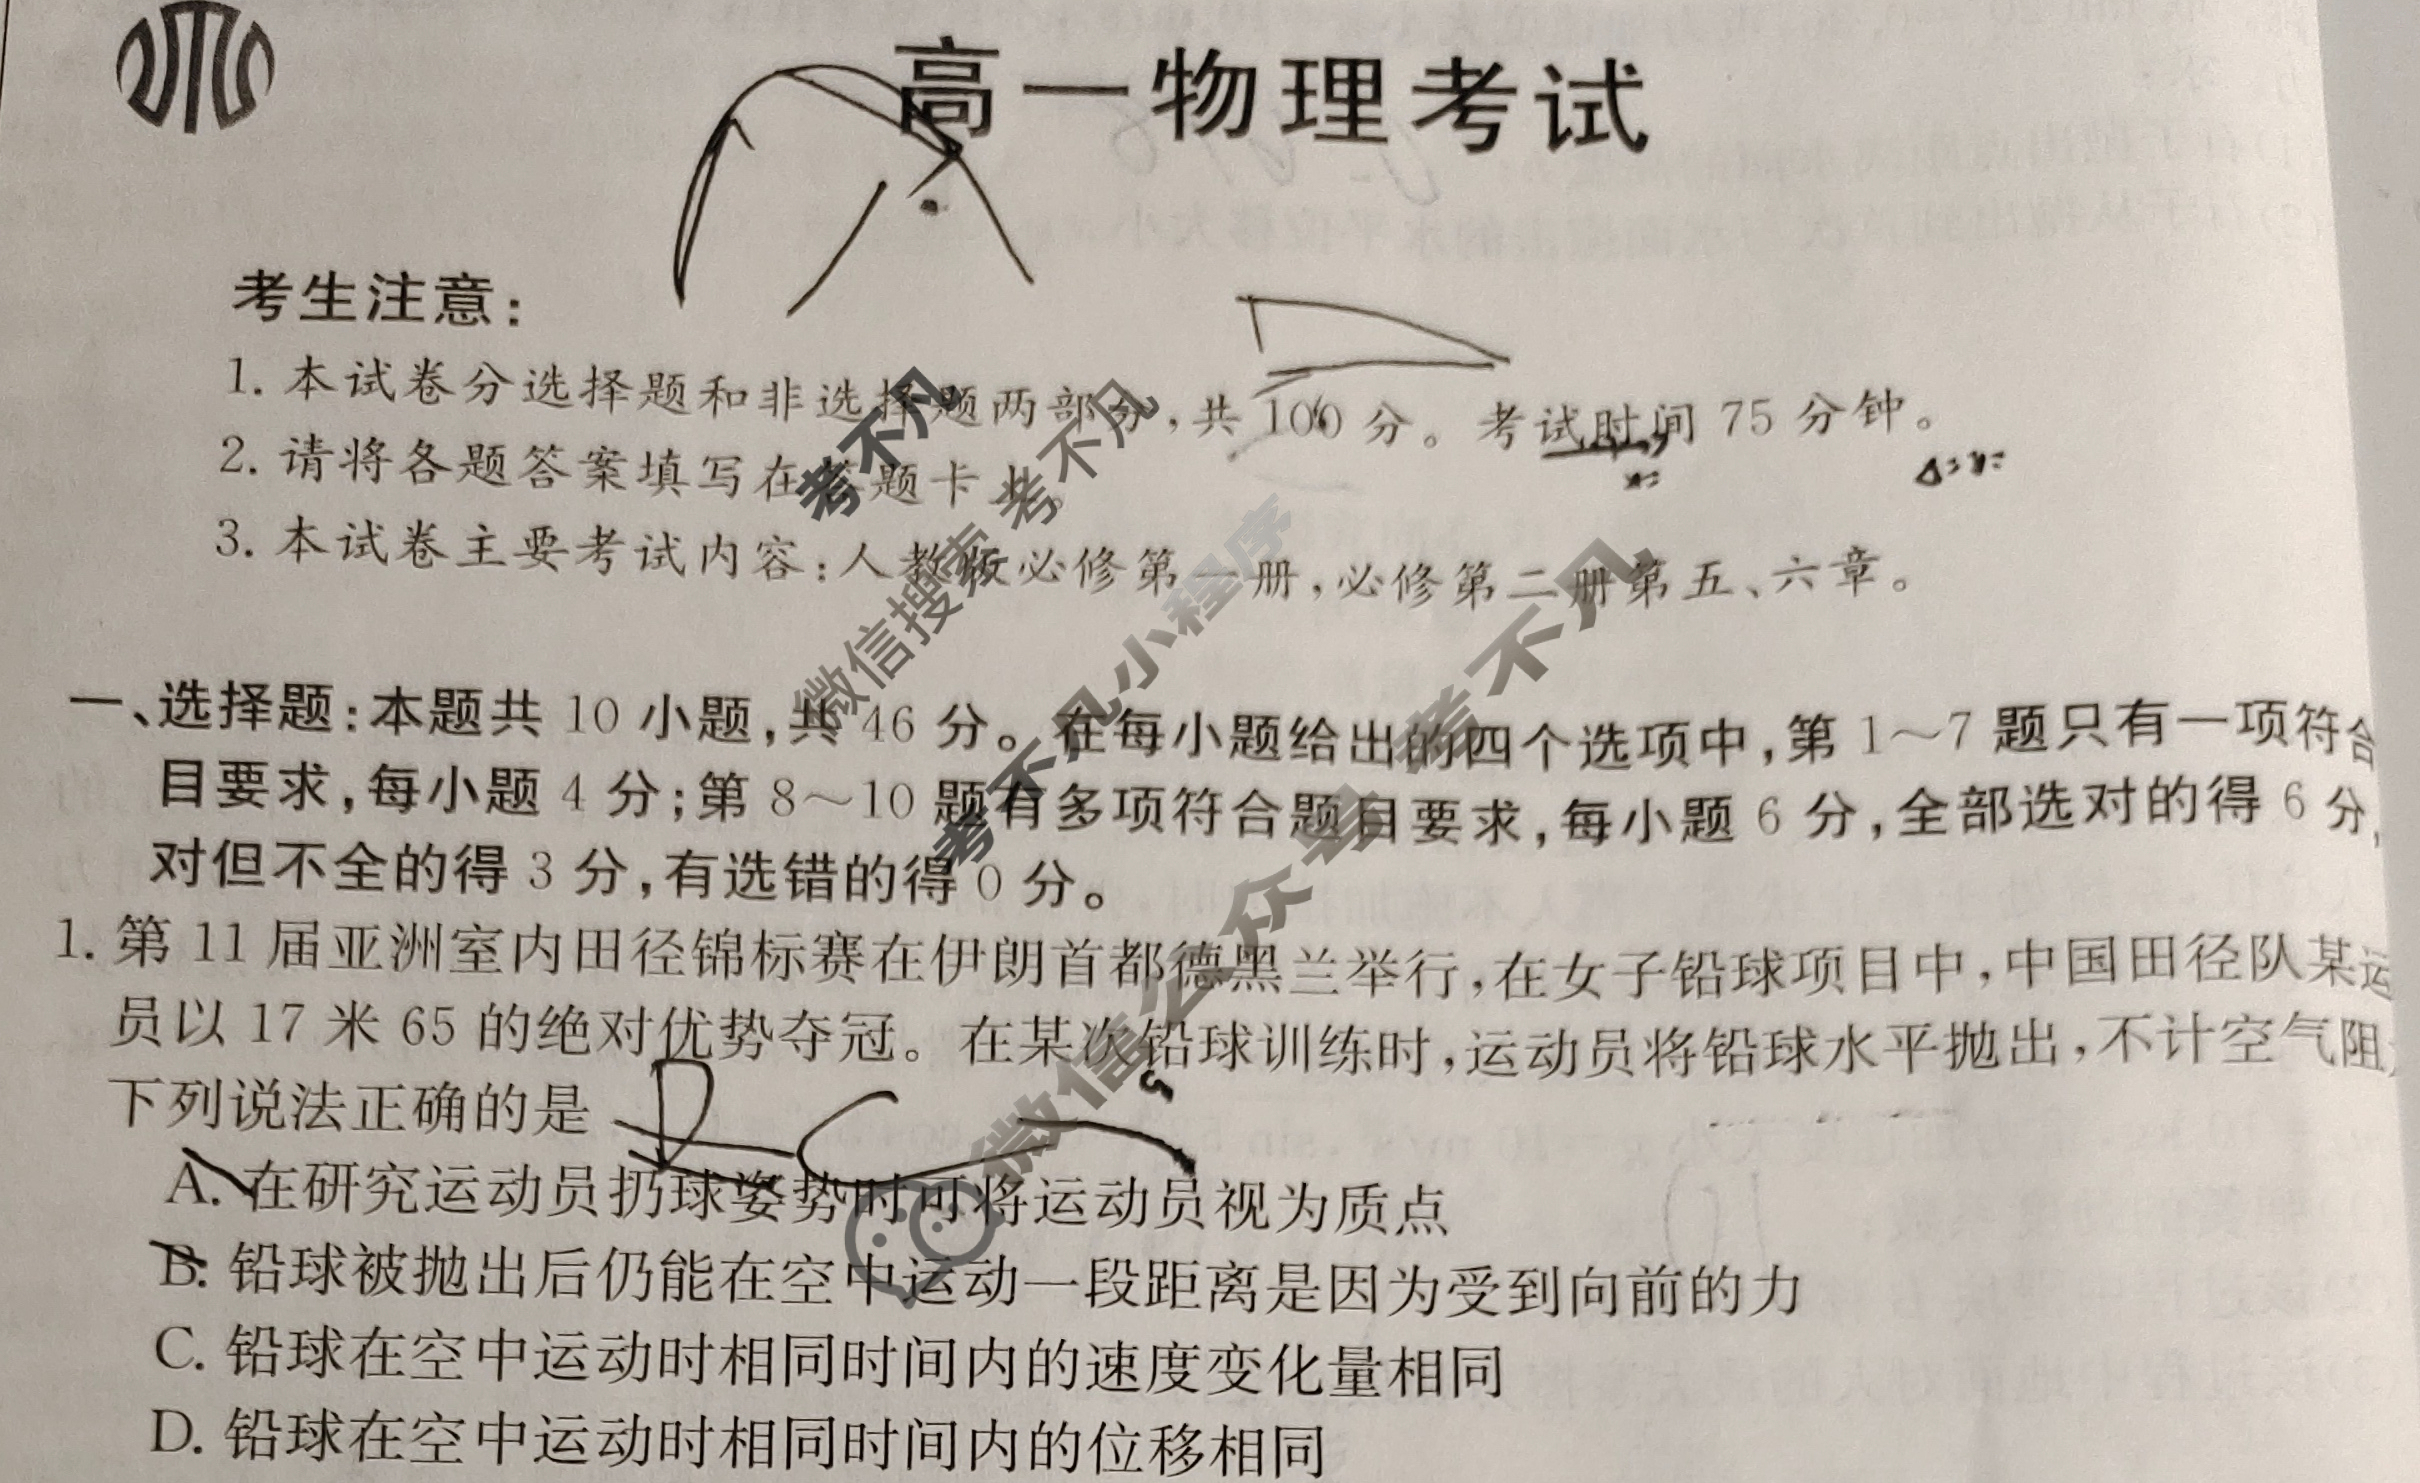 高一物理考试
考生注意:
1. 本试卷分选择题和非选择题两部分,共100分。考试时间75分钟。
2. 请将各题答案填写在答题卡上。
3. 本试卷主要考试内容:人教版必修第一册,必修第二册第五、六章。
一、选择题:本题共10小题,共46分。在每小题给出的四个选项中,第1~7题只有一项符合
目要求,每小题4分;第8~10题有多项符合题目要求,每小题6分,全部选对的得6分,
对但不全的得3分,有选错的得0分。
1. 第11届亚洲室内田径锦标赛在伊朗首都德黑兰举行,在女子铅球项目中,中国田径队某运
员以17米65的绝对优势夺冠。在某次铅球训练时,运动员将铅球水平抛出,不计空气阻
下列说法正确的是
A. 在研究运动员扔球姿势时可将运动员视为质点
B. 铅球被抛出后仍能在空中运动一段距离是因为受到向前的力
C. 铅球在空中运动时相同时间内的速度变化量相同
D. 铅球在空中运动时相同时间内的位移相同
考不凡
微信搜索 考不凡
考不凡小程序
微信公众号 考不凡